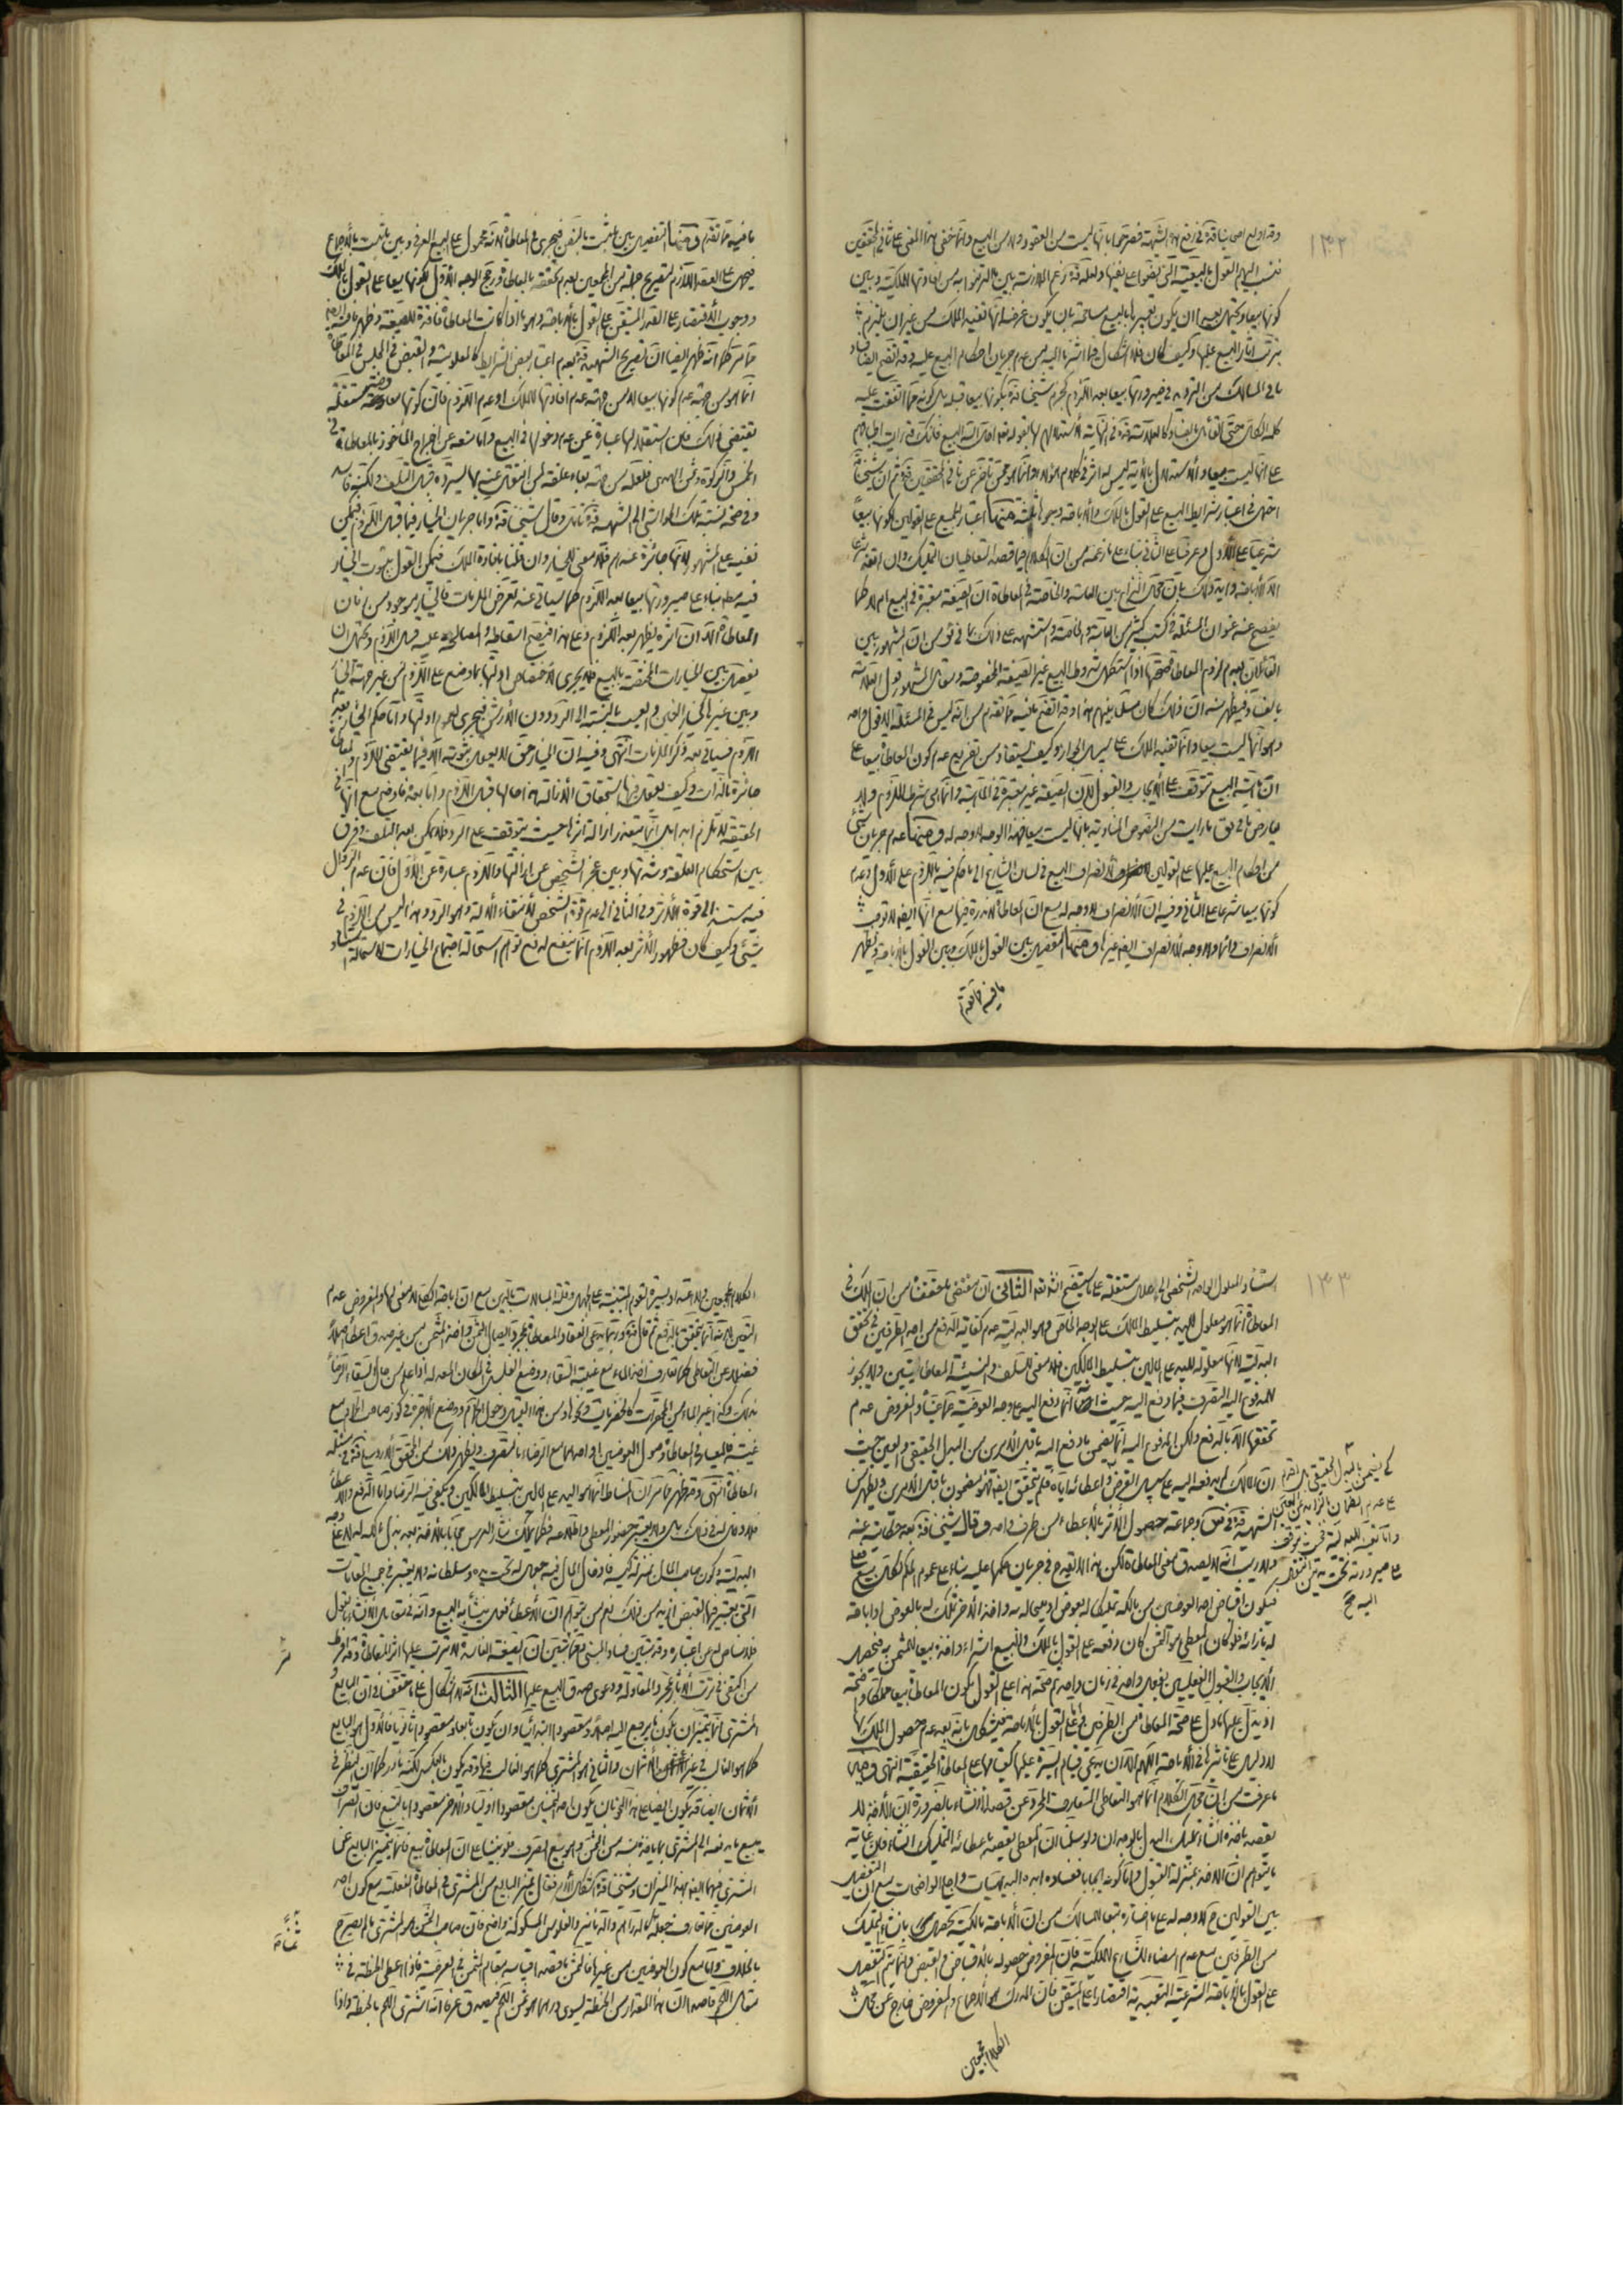 ١٣٢
وقد اولع اصحابنا قده في رفع هذه الشبهة فصرحوا بانها ليست من العقود ولا من البيع وانما خفي هذا المعنى على ثاني المحققين
فنسب اليهم القول بالبيعية التي نصوا على نفيها ولعله قده زعم الملازمة بين ما التزموا به من افادتها الملكية وبين
كونها بيعا ويحتمل ان يكون تعبيرها بالبيع مسامحة بان يكون غرضه انها تفيد الملك من غير ان يلتزم
بترتب اثار البيع عليها وكيف كان فلا اشكال فيما اشرنا اليه من عدم جريان احكام البيع عليه وقد اتضح ايضا فساد
ما في المسالك من الترديد في صيرورتها بيعا بعد اللزوم كجزم شيخنا قده بكونها بيعا قبله بل كونه مما اتفقت عليه
على انها ليست بيعا والاستدلال بالاية ليس له اثر في كلام هؤلاء وانما هو ممن تاخر عن ثاني المحققين قده ثم ان شيخنا
احتمل في اعتبار شرايط البيع على القول بالملك والاباحة وجوها ثلثة منها اعتبار الجميع على القولين لكونها بيعا
شرعيا على الاول وعرفيا على الثاني بناء على ما زعمه من ان الكلام فيما قصد المتعاطيان التمليك وان لم يفد شرعا
الا الاباحة وايد ذلك بان محل النزاع بين العامة والخاصة في المعاطاة ان الصيغة معتبرة في البيع ام لا كما
يفصح عنه عنوان المسئلة في كتب كثير من العامة والخاصة واستشهد على ذلك بما في ئق من ان المشهور بين
القائلين بعدم لزوم المعاطاة صحتها اذا استكمل شروط البيع غير الصيغة المخصوصة ومقابل المشهور قول العلامة
بالفساد فيظهر منه ان ذلك كان مسلما بينهم هذا وقد اتضح ما فيه مما تقدم من انه ليس في المسئلة الا قول واحد
وهو انها ليست بيعا وانما تفيد الملك على سبيل الجواز وكيف يستفاد من تفريع عدم كون المعاطاة بيعا على
ان ماهية البيع تتوقف على الايجاب والقبول لان الصيغة غير معتبرة في الماهية وانما هي شرط اللزوم ولا
من احكام البيع عليها على القولين لانصراف البيع في لسان الشارع الى ما حكم فيه باللزوم على الاول وعدم
كونها بيعا شرعا على الثاني وفيه ان الانصراف لا وجه له مع ان المعاطاة لازمة فيها مع انها ايضا لا توجب
الانصراف دائما ولا وجه للانصراف ايضا غيرها ومنها التفصيل بين القول بالملك وبين القول بالاباحة ويظهر
ما فيه مما تقدم
ما فيه مما تقدم ومنها التفصيل بين ما ثبت بالنص فيجري في المعاطاة لانه محمول على البيع العرفي وبين ما ثبت بالاجماع
فيحمل على العقد اللازم لتصريح جملة من المجمعين بعدم تحققه بالمعاطاة ورجح الوجه الاول لكونها بيعا على القول بالملك
ووجوب الاقتصار على القدر المتيقن على القول بالاباحة وهو ما اذا كانت المعاطاة فاقدة للصيغة وظهر ما فيه ايضا
مما مر كما انه ظهر ايضا ان تصريح الشهيد قده بعدم اعتبار بعض الشرايط كالمعلومية والقبض في المجلس في المعاطاة
انما هو من جهة عدم كونها بيعا لا من جهة عدم افادتها للملك او عدم اللزوم فان كونها معاوضة مستقلة
يقتضي ذلك فان استقلالها عبارة عن عدم دخولها في البيع واما منعه عن اخراج المأخوذ بالمعاطاة في
الخمس والزكوة وثمن الهدي فلعله من جهة بقاء علقة لمن انتقل عنه بها يسترده قبل التلف ولكنه فاسد
وفي صحة نسبة تلك الحواشي الى الشهيد قده تأمل وقال شيخنا قده واما جريان الخيار فيها قبل اللزوم فيمكن
نفيه على المشهور لانها جائزة عندهم فلا معنى للخيار وان قلنا بافادة الملك فيمكن القول بثبوت الخيار
فيه مطلقا بناء على صيرورتها بيعا بعد اللزوم كما سيأتي عند تعرض الملزمات فالخيار موجود من زمان
المعاطاة الا ان اثره يظهر بعد اللزوم وعلى هذا فيصح اسقاطه والمصالحة عليه قبل اللزوم ويحتمل ان
يفصل بين الخيارات المختصة بالبيع فلا يجري لاختصاص ادلتها بما وضع على اللزوم من غير جهة الخيار
وبين غيرها كخيار الغبن والعيب بالنسبة الى الرد دون الارش فيجري لعموم ادلتها واما حكم الخيار بعد
اللزوم فسيأتي بعد ذكر الملزمات انتهى وفيه ان الخيار حق لا يعقل ثبوته الا فيما يقتضي اللزوم والمعاطاة
جائزة بالذات
بين استحكام العلقة وشدتها وبين عجز الشخص عن ازالتها واللزوم عبارة عن الاول فان عدم الزوال
فيه مستند الى قوة الاثر وفي الثاني الى عدم قوة الشخص لانتفاء الالة وهو الرد وهذا ليس من اللزوم في
شيئ وكيف كان فظهور الاثر بعد اللزوم انما ينفع لدفع توهم استحالة اجتماع الخيارات لاستحالة استناد
١٣٣
استناد المعلول الواحد الشخصي الى علل مستقلة على ما سيتضح انشاء الله تعالى الثاني ان مقتضى ما حققناه من ان الملك في
المعاطاة انما هو معلول لليد بتسليط المالك على الوجه الخاص وهو البدلية عدم كفاية الدفع من احد الطرفين في تحقق
البدلية لانها معلولة لليد على المالين بتسليط المالكين فلا معنى للسلف والنسيئة المعاطاتيتين ولا يجوز
للمدفوع اليه التصرف فيما دفع اليه حيث انه انما دفع اليه على وجه العوضية كما عينا والمفروض عدم
تحققها الا بالدفع ولكن المدفوع اليه انما يضمن ما دفع اليه باقل الامرين من البدل الحقيقي والعين حيث
ان المالك لم يدفعه اليه على سبيل القرض واعطائه اياه فلم يتحقق ايضا فهو مضمون باقل الامرين ويظهر من
الشهيد قده في س وجماعة حصول الاثر بالاعطاء من طرف واحد وقال شيخنا قده بعد حكايته عنه
ولا ريب انه لا يصدق معنى المعاطاة لكن هذا لا يقدح في جريان حكمها عليه بناء على عموم الحكم لكل بيع فعلي
فيكون اقباض احد العوضين من مالكه تمليكا له بعوض او مبيحا له به واخذ الاخر تملكا له بالعوض او اباحة
له بازائه فلو كان المعطى هو الثمن كان دفعه على القول بالملك والبيع اشتراء واخذه بيعا للمثمن به فيحصل
الايجاب والقبول الفعليين بفعل واحد في زمان واحد ثم صحة هذا على القول بكون المعاطاة بيعا مملكا واضحة
اذ يدل عليها ما دل على صحة المعاطاة من الطرفين واما على القول بالاباحة فيشكل بانه بعد عدم حصول الملك بها
لا دليل على تأثيرها في الاباحة اللهم الا ان يدعى قيام السيرة عليها كقيامها على المعاطاة الحقيقية انتهى وفيه
ما عرفت من ان محل الكلام انما هو التعاطي المتعارف المجرد عن قصد الانشاء بالضرورة ان الاخذ لا
يقصد باخذه انشاء تمليك البدل بالوجدان ولو سلمنا ان المعطي يقصد باعطائه التمليك انشاء فان غاية
ما يتوهم ان الاخذ بمنزلة القبول واما كونه ايجابا ففساده ابده البديهيات واجلى الواضحات مع ان التفصيل
بين القولين ح لا وجه له على ما اختاره تبعا للمسالك من ان الاباحة مالكية تحصل بانشاء التمليك
من الطرفين مع عدم امضاء الشارع للملكية فان المفروض حصوله بالاقباض والقبض وانما يتم التفصيل
على القول بالاباحة الشرعية التعبدية اقتصارا على المتيقن فان المدرك هو الاجماع والمفروض خارج عن محل
الكلام المجمعين
كي يضمن بالبدل الحقيقي بل اقدم
على عدم الضمان بالزايد عن العين
واما تعيينه للبدلية فحيث توقف
على صيرورته تحت يد من انتقل
اليه صح
التعين لا بد انما يتحقق بالدفع ثم قال قده وربما يدعى انعقاد المعاطاة بمجرد ايصال الثمن واخذ المثمن من غير صدق اعطاء اصلا
فضلا عن التعاطي كما تعارف اخذ الماء مع غيبة السقاء ووضع الفلس في المكان المعد له اذا علم من حال السقاء الرضا
بذلك وكذا غير الماء من المحقرات كالخضريات ونحوها ومن هذا القبيل دخول الحمام ووضع الاجرة في كوز صاحب الحمام مع
غيبته فالمعيار في المعاطاة وصول العوضين او احدهما مع الرضاء بالتصرف ويظهر ذلك من المحقق الاردبيلي قده في مسئلة
المعاطاة انتهى وقد ظهر مما مر ان المناط انما هو اليد على المالين بتسليط المالكين ويكفي فيه الرضا واما الدفع والاعطاء
البدلية وكون صاحب المال بمنزلة كيسه فادخال المال فيه جعل له تحت يده وسلطانه ولا يعتبر في جميع المقامات
التي يعتبر فيها القبض ازيد من ذلك نعم من توهم ان الاعطاء فعل ينشأ به البيع وانه في مقابل الانشاء بالقول
فلا مناص له من اعتباره وقد تبين فساد المبنى كما تبين ان الصيغة الفاسدة لا تترتب عليها اثر المعاطاة وقد افرط
من اكتفى في ترتب الاثار بمجرد المقاولة ودعوى صدق البيع عليها الثالث انه لا اشكال على ما حققناه في ان البايع والمشتري
المشتري انما يتميزان بكون ما يرجع اليه اصلا ومقصودا ابتدائيا وان يكون تابعا ومقصودا ثانويا فالاول هو البايع
كما هو الغالب في غير الاثمان والثاني هو المشتري كما هو الغالب فيها وقد يكون بالعكس لكنه نادر كما ان النظر في
الاثمان ايضا قد يكون اليها على انحاء بان يكون احد الثمنين مقصودا اوليا والاخر مقصودا بالتبع فان الصراف
يبيع ما يدفعه الى المشتري بما ياخذه منه من الثمن وهو بيع الصرف فلو بنينا على ان المعاطاة بيع فانما يتميز البايع عن
المشتري فيها ايضا بهذا الميزان وشيخنا قده استشكل الامر فقال تميز البايع من المشتري في المعاطاة الفعلية مع كون احد
العوضين مما تعارف جعله ثمنا كالدراهم والدنانير والفلوس المسكوكة واضح فان صاحب الثمن هو المشتري ما لم يصرح
بالخلاف واما مع كون العوضين من غيرها فالثمن ما قصد قيامه مقام الثمن في العوضية فاذا اعطى الحنطة في
مقابل اللحم قاصدا ان هذا المقدار من الحنطة يسوى درهما هو ثمن اللحم فيصدق عرفا انه اشترى اللحم بالحنطة واذا